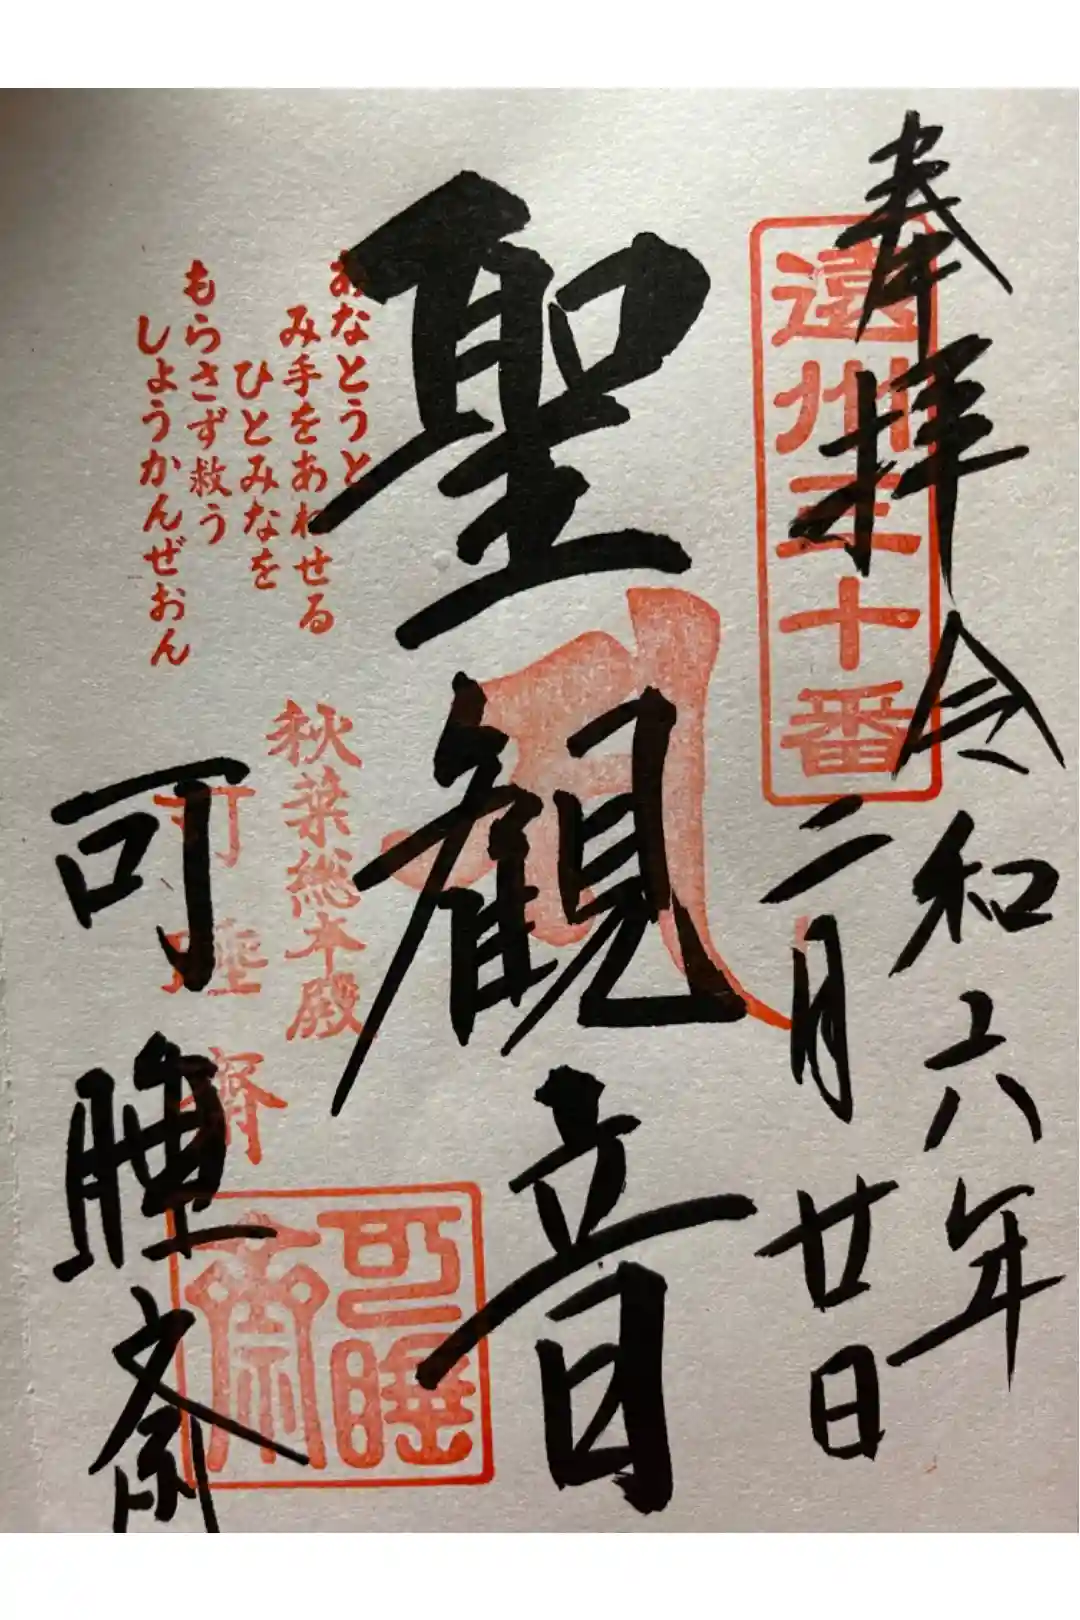 奉拝
令和六年
二月廿日
遠州三十三番
聖観音
おなとうと
み手をあわせる
ひとみなを
もらさず救う
しょうかんぜおん
秋葉総本殿
可睡斎
可睡斎
可睡斎